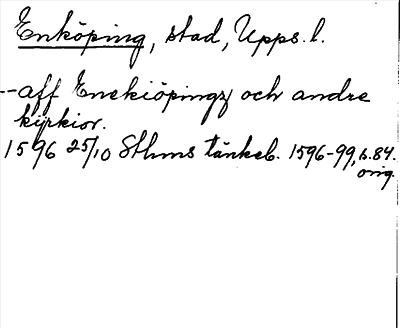 Enköping, stad, Upps. l.
--aff Enekiöpingz och andre
kijrkior.
1596 25/10 Sthms tänkeb. 1596-99, s. 84.
orig.